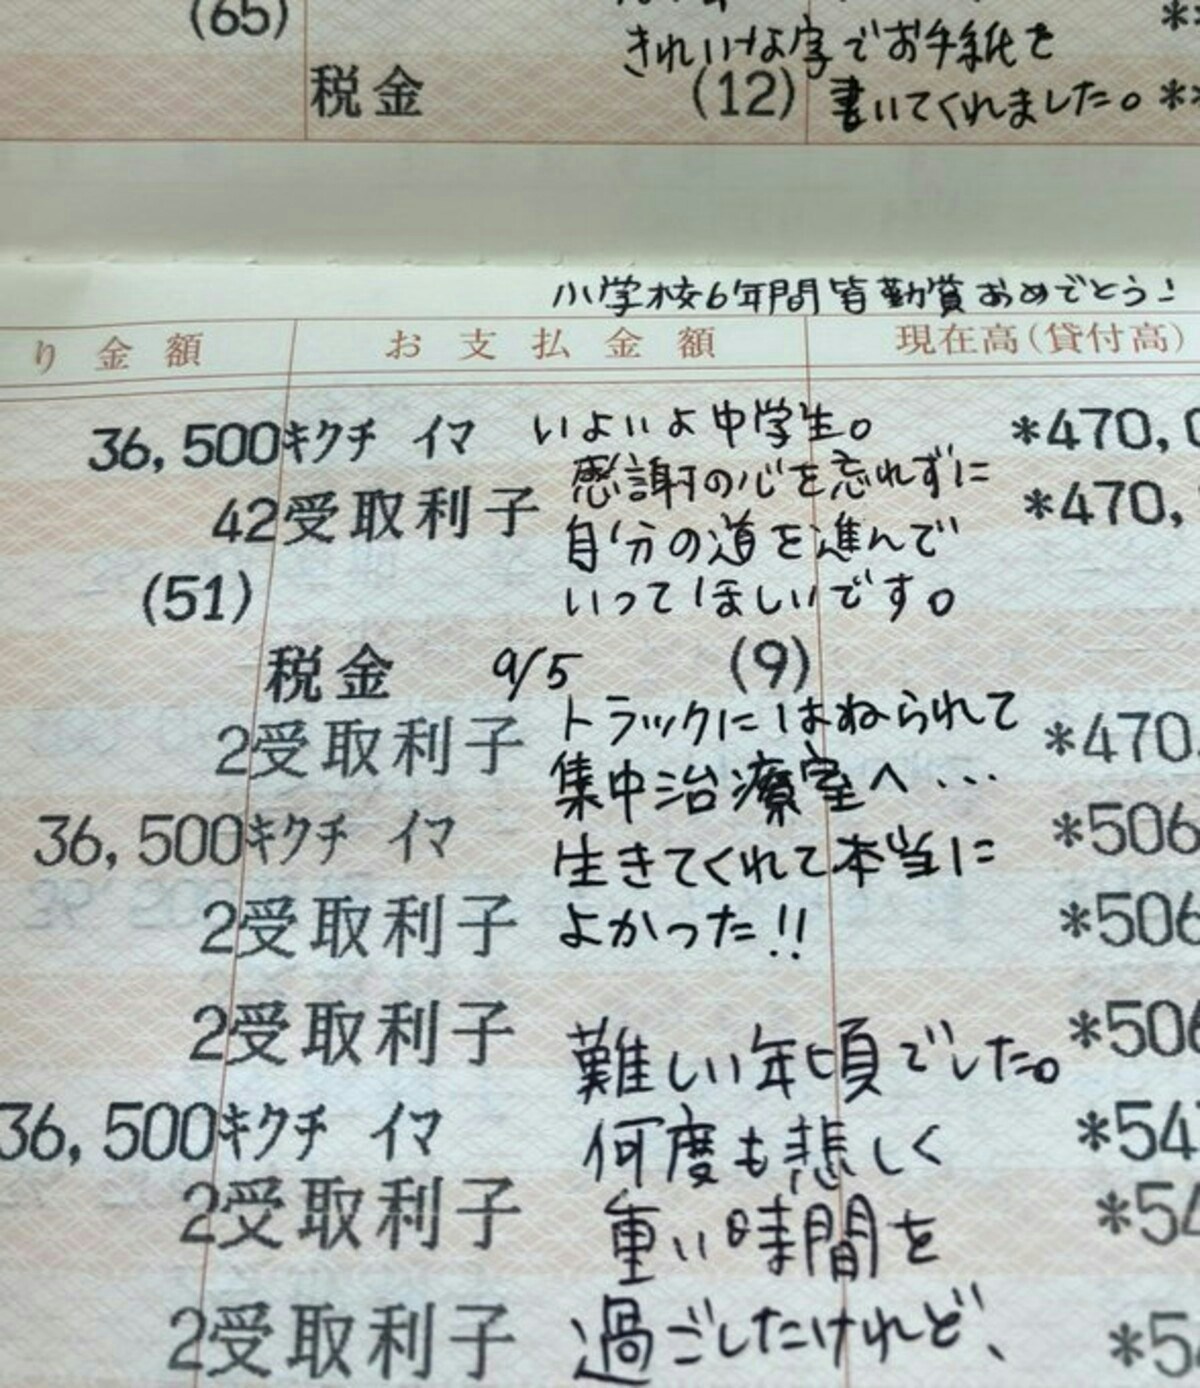 (65)
きれいな字でお手紙を
税金 (12) 書いてくれました。*
小学校6年間皆勤賞おめでとう!
り金額 お支払金額 現在高(貸付高)
36,500キクチ イマ いよいよ中学生。 *470,0
42受取利子 感謝の心を忘れずに *470,
自分の道を進んで
(51) いってほしいです。
税金 9/5 (9)
2受取利子 トラックにはねられて *470
集中治療室へ...
36,500キクチ イマ 生きてくれて本当に *506
2受取利子 よかった!! *506
2受取利子 難しい年頃でした。 *506
36,500キクチ イマ 何度も悲しく *54
2受取利子 重い時間を *54
2受取利子 過ごしたけれど、 *5